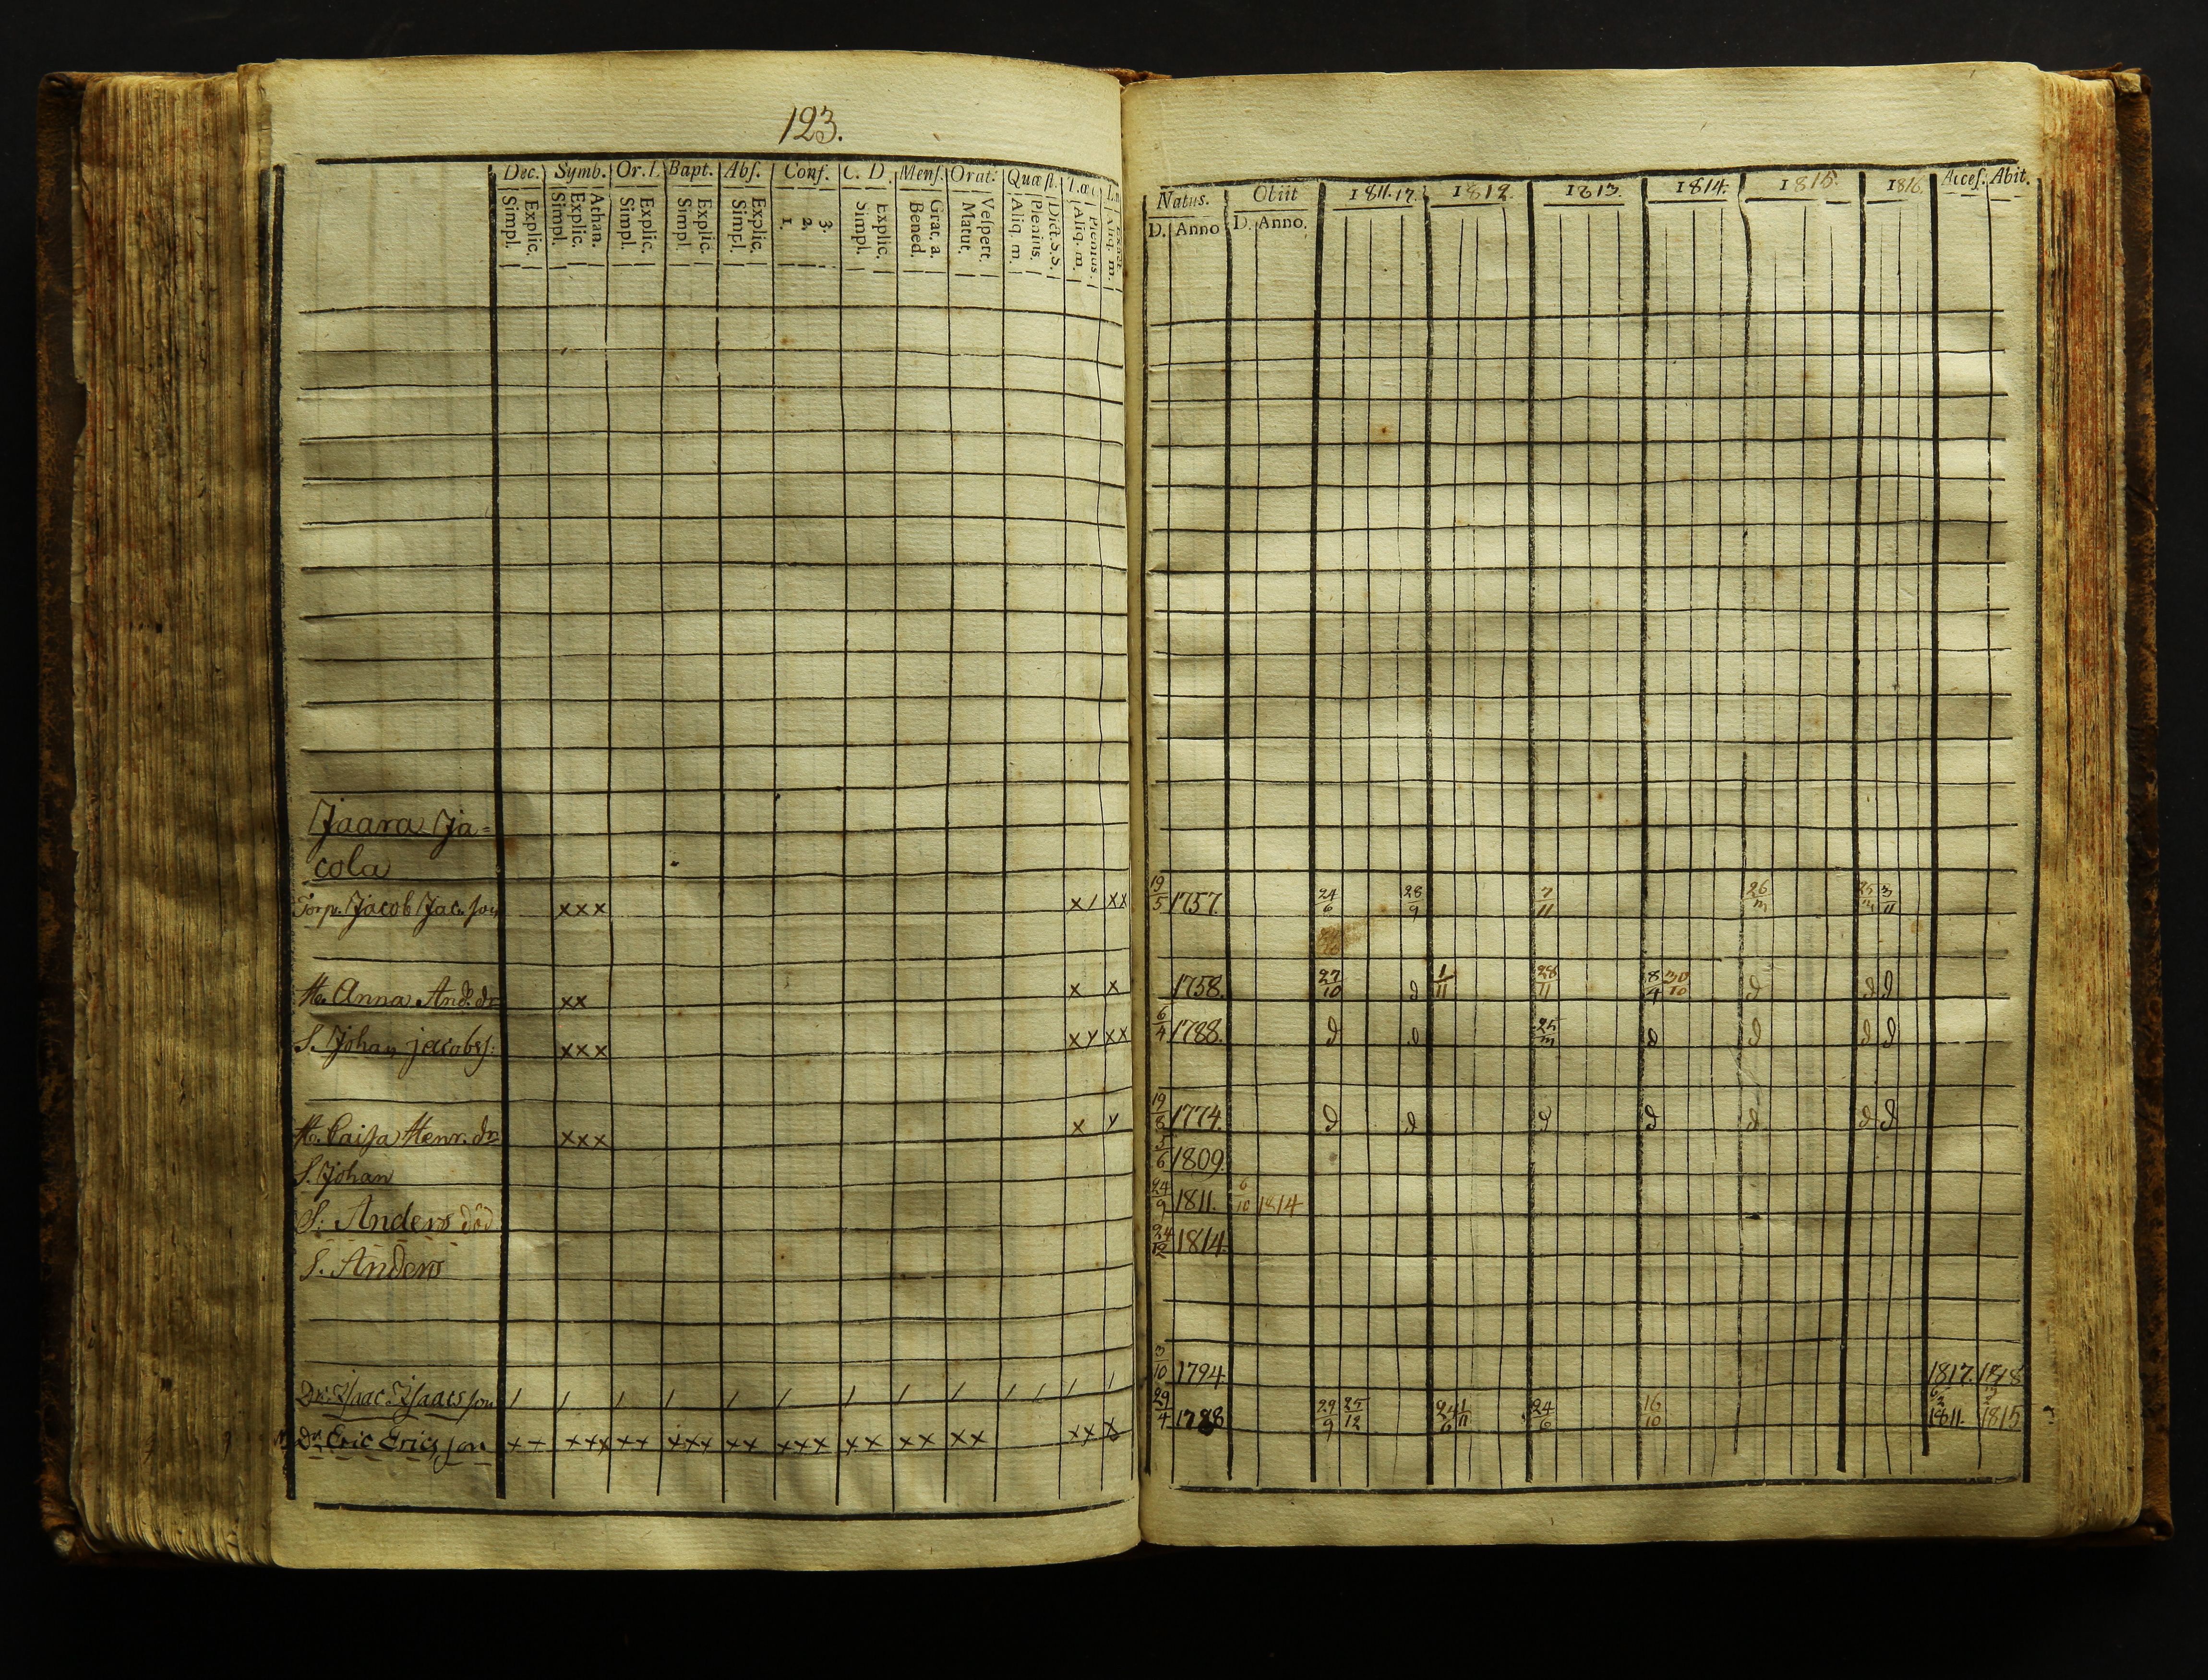 123.
Dec. Symb. Or. I. Bapt. Abſ. Conf. C. D. Menſ. Orat. Quæſt.
Explic. Simpl. Athan. Explic. Simpl. Explic. Simpl. Explic. Simpl. Explic. Simpl. 3. 2. 1. Explic. Simpl. Grat. a. Bened. Veſpert. Matut. Dict. S.S. Plenius. Aliq. m. Plenius. Aliq. m. Aliq. m.
Natus. Obiit 1811.12. 1812. 1813. 1814. 1815. 1816. Acceſ. Abit.
D. Anno D. Anno.
Jaara Ja=
cola
Torp. Jacob Jac.son xxx x/ xx 19/5 1757. 24/6 28/9 7/11 26/m 25/m 3/11
H. Anna And. dr xx x x 1758. 27/10 d 1/11 28/11 8/4 30/10 d d d
S. Johan jacobs: xxx xy xx 6/4 1788. d d 25/m d d d d
H. Caisa Henr. dr xxx x y 19/8 1774. d d d d d d d
S. Johan 5/6 1809.
S: Anders död 24/9 1811. 6/10 1814
S. Anders 24/12 1814.
Dr. Isaac Isaacsson / / / / / / / / / / / / / 3/10 1794 1817. 1818
Dr. Eric Ericsson xx xxx xx xxx xx xxx xx xx xx xx x 29/4 1788 29/9 25/12 24/6 1/11 24/6 16/10 1811. 1815